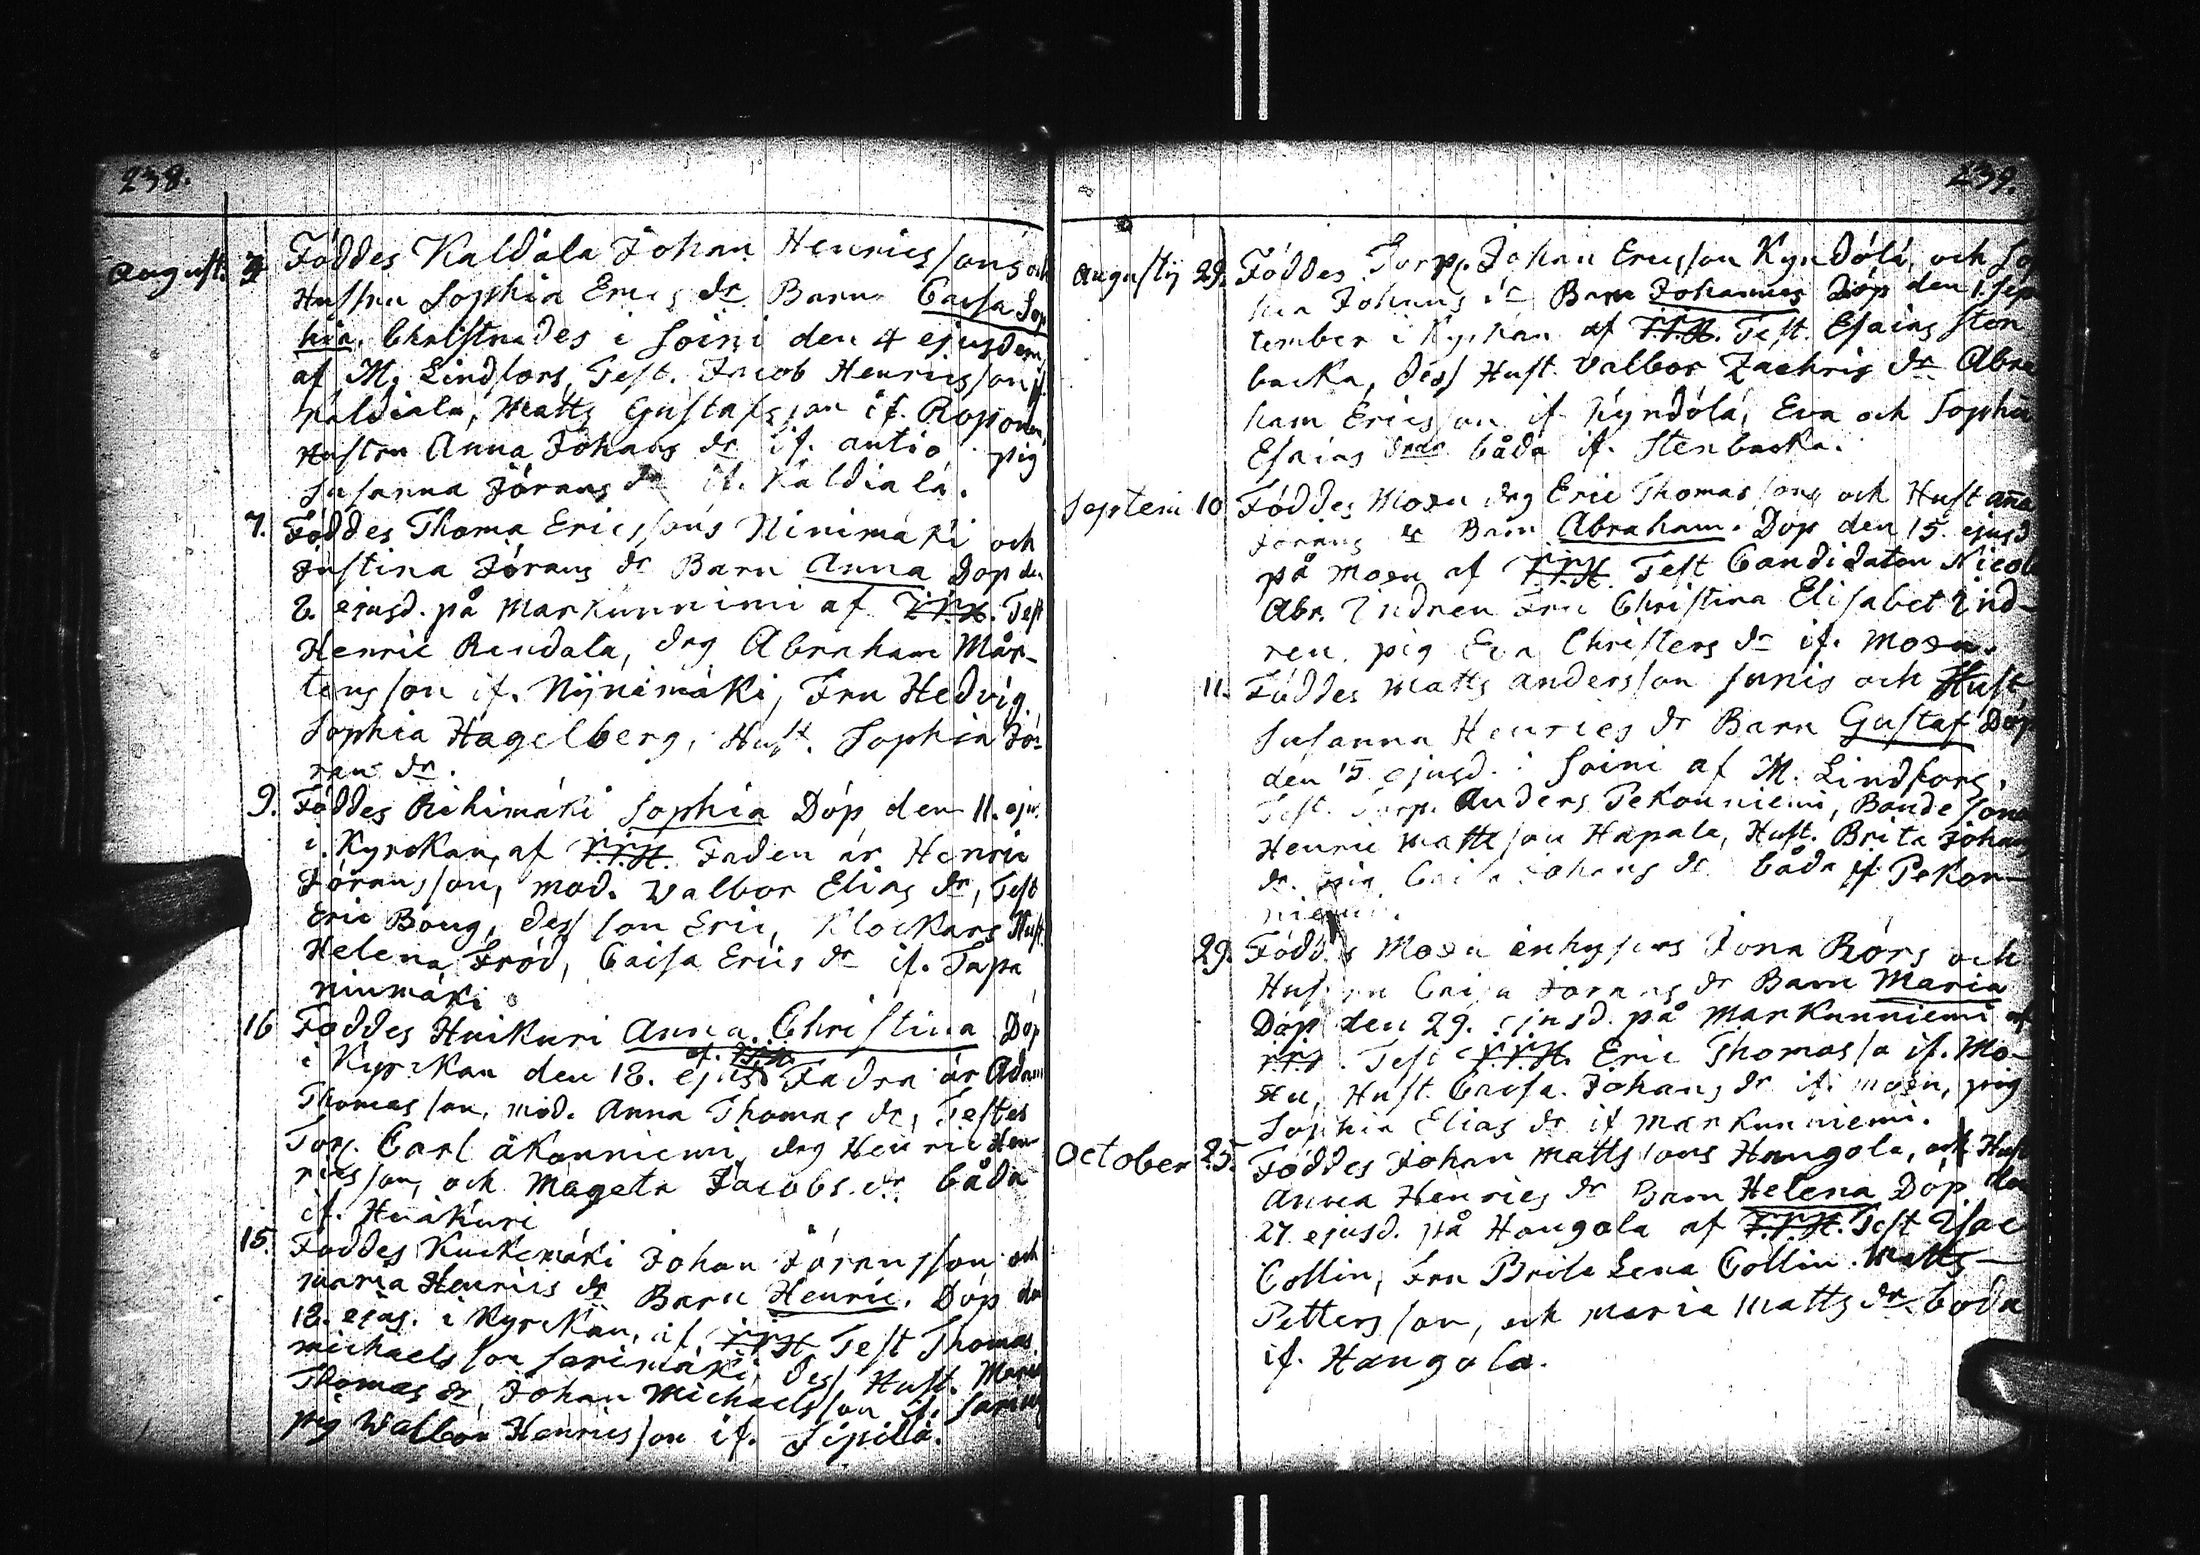 238.
August. 3 Föddes Kaldåla Johan Henricssons och
Hustru Sophia Erics dr Barn Caisa Sop
hia, Christnades i Soini den 4 ejusdem
af M. Lindfors, Test. Jacob Henricsson if.
Kaldiala, Matts Gustafsson if. Roponen,
Hustru Anna Johans dr if. antio pig
Susanna Jörans dr if. Kaldiala.
7. Föddes Thoma Ericssons Ninimäki och
Justina Jörans dr Barn Anna Döp den
8. ejusd. på Markunnimi af F.F.H. Test
Henric Rendala, drg Abraham Mår-
tensson if. Nÿnimäki, Fru Hedvig
Sophia Hagelberg, Hust. Sophia Jö-
rans dr.
9. Föddes Rihimäki Sophia Döp den 11. ejus.
i Kyrckan, af F.F.H. Faden är Henric
Jöransson, mod. Walbor Elias dr, Test
Eric Boug, dess son Eric, Klockars Hust.
Helena Fröd, Caisa Erics dr if. Tapa
ninmäki
16 Föddes Huikuri Anna Christina Döp
i Kyrckan den 18. ejusd af. F.F.H. Fadren är Adam
Thomasson, mod. Anna Thomas dr, Testes
Torp. Carl åkonniemi, drg Henric Hen-
ricsson, och Mageta Jacobs dr båda
if. Huikuri
15. Föddes Kuckemäki Johan Jöransson och
maria Henrics dr Barn Henric. Döp den
18. ejus. i Kyrckan, af F.F.H Test Thomas
michaelsson Sarimäki, dess Hust. Maria
Thomas dr, Johan Michaelsson if. Sarim
pig Walbor Henricsson if. Sipilä.
239.
Augustÿ 29. Föddes Torp. Johan Ericsson Kyndölä, och Sop
hia Johans dr Barn Johannes Döp den 1. Sep
tember i Kyrkan af F.F.H. Test. Esaias Sten
backa, dess Hust. Valbor Zachris dr Abra
ham Ericsson if Kyndölä, Eva och Sophia
Esaias drar båda if. Stenbacka.
Septem 10 Föddes Moxu drg Eric Thomassons och Hust anna
Jörans dr Barn Abraham. Döp den 15. ejusd
på moxu af F.F.H. Test Candidaten Nicol
Abr. Indren Fru Christina Elisabet Ind-
ren, pig Eva Christers dr if. moxu.
11. Föddes Matts Andersson Sunis och Hust
Susanna Henrics dr Barn Gustaf Döp
den 15 ejusd. i Soini af M. Lindfors,
Test. Torp. Anders Pekonniemi, Bonde Sone
Henric Mattsson Hapala, Hust. Brita Johans
dr. pig Caisa Johans dr båda if Pekon-
niemi.
29. Föddes Moxu inhyses Jona Rörs och
Hustru Caisa Jörans dr Barn Maria
Döp den 29. ejusd. på Markunniemi af
F.F.H. Test F.F.H. Eric Thomasso if. Mo-
xu, Hust. Caisa Johans dr if. moxu, pig
Sophia Elias dr if markunniemi.
October 25. Föddes Johan Mattssons Hangola, och Hust
Anna Henrics dr Barn Helena Döp den
27. ejusd. på Hongola af F.F.H. Test Isac
Collin, Fru Brita Lena Collin. Matts
Pettersson, och maria Matts dr båda
if. Hangola.